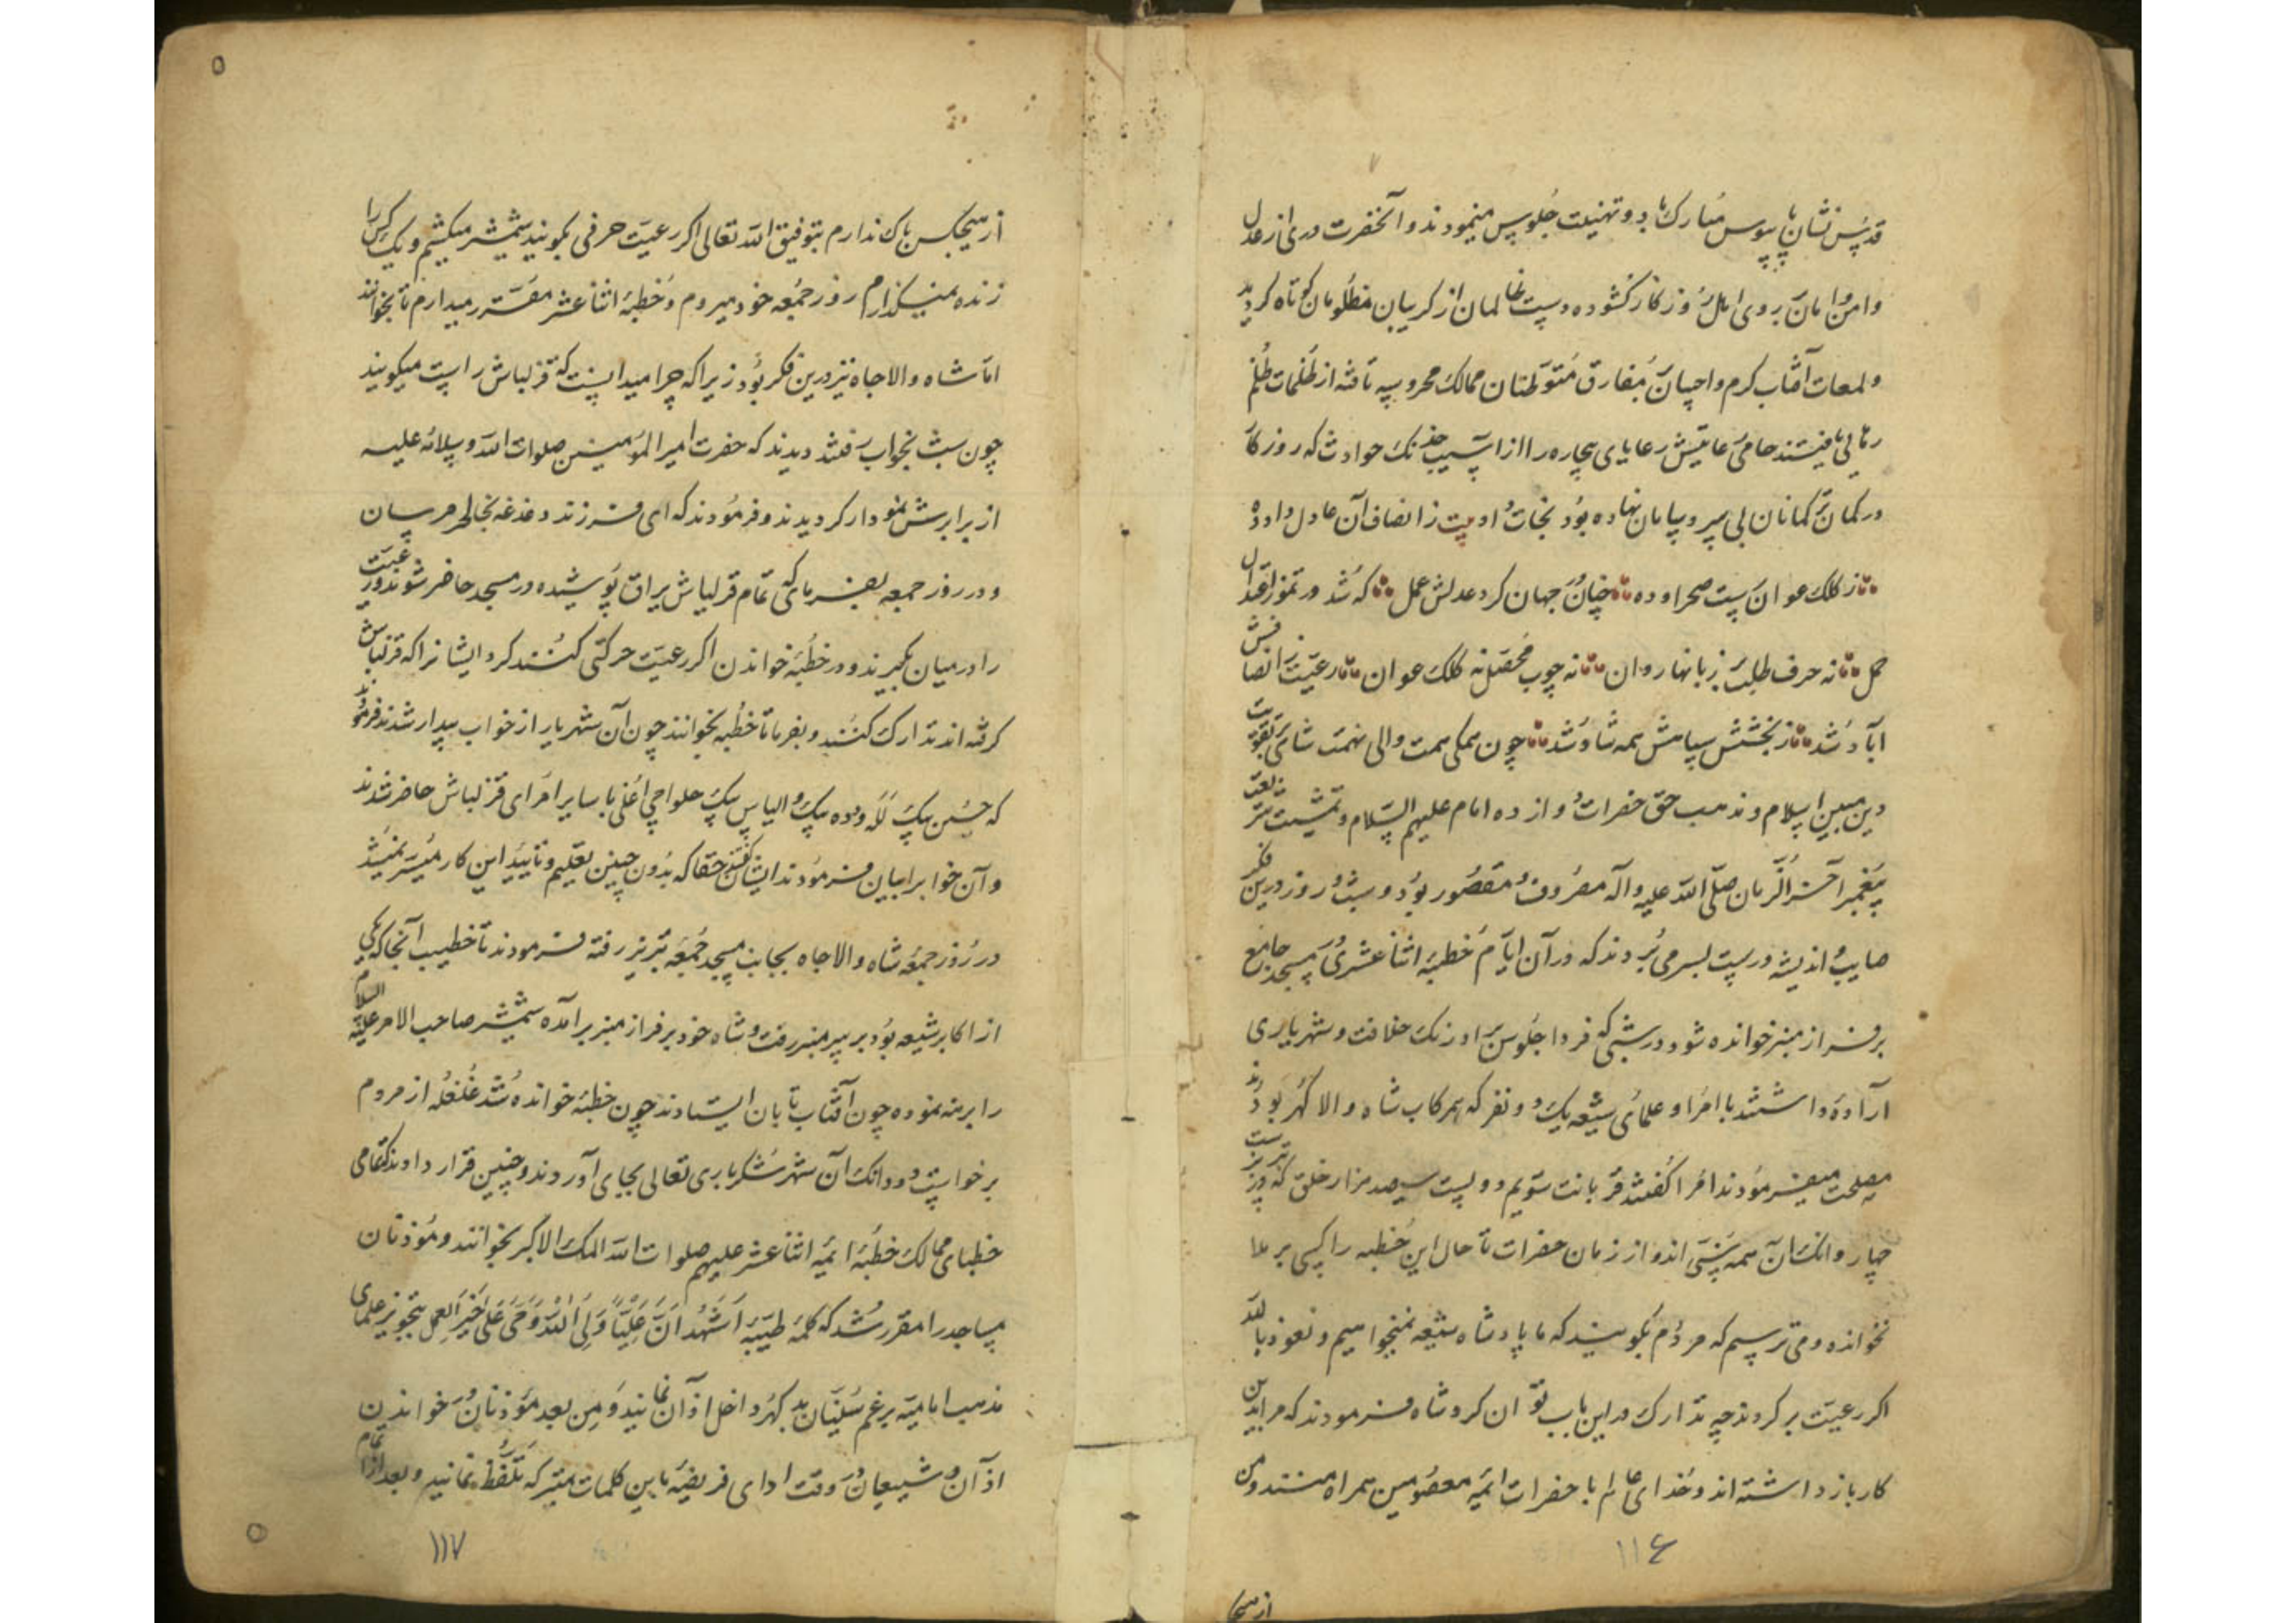 قدسش نشان پابوس مبارک باد و تهنیت جلوس مینمودند و آنحضرت دری از عدل
و امن و امان بروی اهل روزگار گشوده دست ظالمان از گریبان مظلومان کوتاه کردید
و لمعات آفتاب کرم و احسان بمفارق متوطنان ممالک محروسه تافته از ظلمات ظلم
رهایی یافتند حامی عاتیش رعایای بیچاره را از آسیب خدنک حوادث که روزکار
در کمان ترکمانان بی سر و سامان نهاده بود نجات داد بیت ز انصاف آن عادل داد ده
ز کلک عوانان بست صحرا و ده چنان در جهان کرد عدلش عمل که شد در تموز اعتدال
حمل نه حرف طلب بر زبانها روان نه چوب محصل نه کلک عوان رعیت ز انصافش
آباد شد ز بخشش سپاهش همه شاد شد چون همکی همت والی نهمت شاهی بتقویت
دین مبین اسلام و مذهب حق حضرات دوازده امام علیهم السلام و تمشیت شریعت
پیغمبر آخر الزمان صلی الله علیه و آله مصروف و مقصور بود و شب و روز درین فکر
صایب و اندیشه درست بسر می بردند که در آن ایام خطبه اثنا عشری در مسجد جامع
بر فراز منبر خوانده شود در شبی که فردا جلوس بر اورنک خلافت و شهریاری
اراده داشتند با امرا و علمای شیعه یک دو نفر که همرکاب شاه والا کهر بودند
مصلحت میفرمودند امرا گفتند قربانت شویم دویست سیصد هزار خلق که در تبریزست
چهار دانک آن همه سنی اند و از زمان حضرات تا حال این خطبه را کسی برملا
نخوانده و می ترسیم که مردم بگویند که ما پادشاه شیعه نمیخواهیم و نعوذ بالله
اگر رعیت برگردند چه تدارک در این باب توان کرد شاه فرمودند که مرا بدین
کار باز داشته اند و خدای عالم با حضرات ائمه معصومین همراه هستند و من
۱۱۶
از هیچکس
از هیچکس باک ندارم بتوفیق الله تعالی اگر رعیت حرفی بگویند شمشیر میکشم و یک کس را
زنده نمیگذارم روز جمعه خود میروم و خطبه اثنا عشر مقرر میدارم تا بخوانند
اما شاه والاجاه نیز درین فکر بود زیرا که چرا میدانست که قزلباش راست میگویند
چون شب بخواب رفتند دیدند که حضرت امیر المومنین صلوات الله و سلامه علیه
از برابرش نمودار کردیدند و فرمودند که ای فرزند دغدغه بخاطر مرسان
و در روز جمعه بفرمای که تمام قزلباش یراق پوشیده در مسجد حاضر شوند و رعیت
را در میان بگیرند و در خطبه خواندن اگر رعیت حرکتی کنند گرد ایشانرا که قزلباش
گرفته اند تدارک کنند و بفرما تا خطبه بخوانند چون آن شهریار از خواب بیدار شدند فرمودند
که حسین بیک لله و دده بیک و الیاس بیک حلواچی اغلی با سایر امرای قزلباش حاضر شدند
و آن خواب را بیان فرمودند ایشان گفتند حقا که بدون چنین تعلیم و تایید این کار میسر نمیشد
در روز جمعه شاه والاجاه بجانب مسجد جمعه تبریز رفته فرمودند تا خطیب آنجا که یکی
از اکابر شیعه بود بر سر منبر رفت و شاه خود بر فراز منبر برآمده شمشیر صاحب الامر علیه السلام
را برهنه نموده چون آفتاب تابان ایستادند چون خطبه خوانده شد غلغله از مردم
برخواست دو دانک آن شهر شکر باری تعالی بجای آوردند و چنین قرار دادند که تمامی
خطبای ممالک خطبه ائمه اثنا عشر علیهم صلوات الله الملک الاکبر بخوانند و مؤذنان
مساجد را مقرر شد که کلمه طیبه اشهد ان علیا ولی الله و حی علی خیر العمل بتجویز علمای
مذهب امامیه برغم سنیان بد گهر داخل اذان نمایند و من بعد مؤذنان خواندن
اذان و شیعیان وقت ادای فریضه باین کلمات متبرکه تلفظ نمایند و بعد از اتمام
۱۱۷